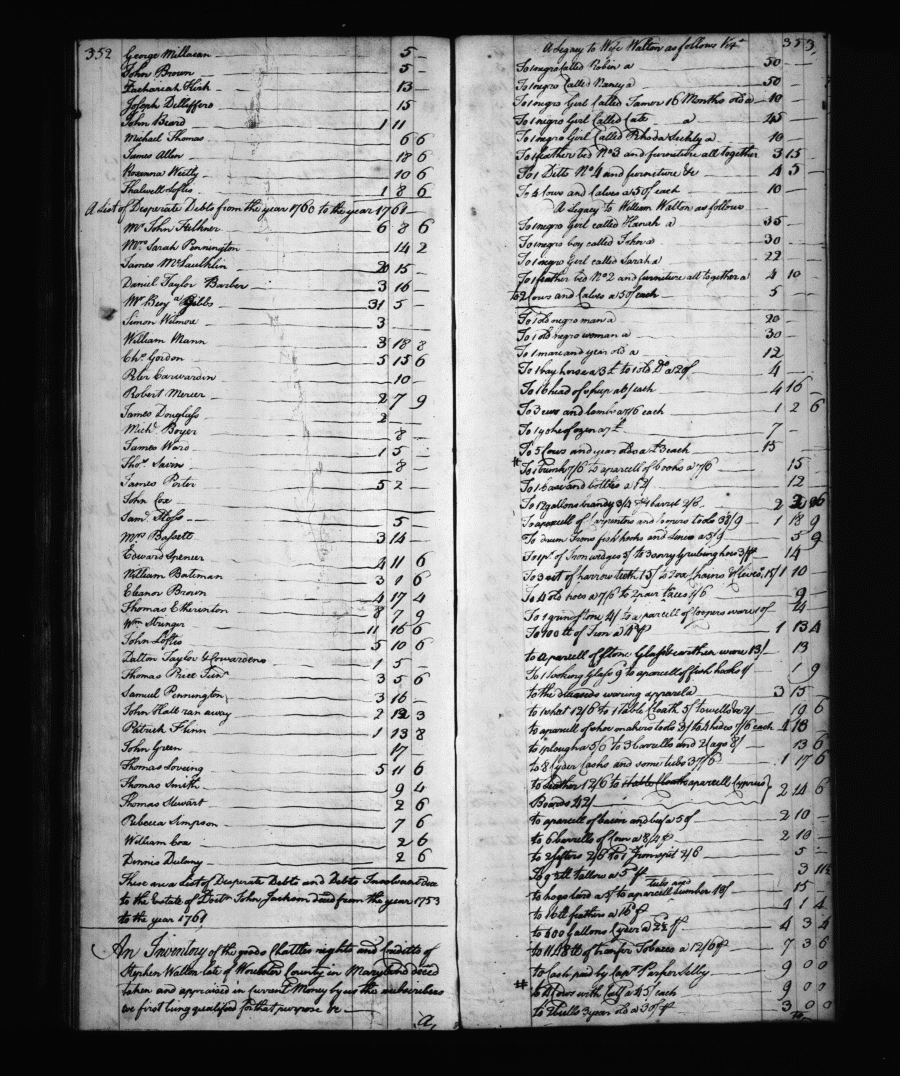 352
George Millacan — 5 —
John Brown — 5 —
Zachariah Hirk — 13 —
Joseph Dellifforo — 15
John Beard — 1 11
Michael Thomas — 6 6
James Allen — 18 6
Roxanna Westly — 10 6
Shalwell loftis — 1 8 6
A List of Desperate Debts from the year 1760 to the year 1761 —
Mr John Helhner — 6 8 6
Mrs Sarah Pennington 14 2
James McLauhklin — 20 15 —
Daniel Taylor Barber — 3 16 —
Mr Benj.a Gibbs — 31 5 —
Simon Wilmore — 3
William Mann — 3 18 8
Chs. Gordon — 5 15 6
Peter Carwardin — 10 —
Robert Mercer — 2 7 9
James Douglass — 2
Michl. Boyer — 8 —
James Ward — 1 5 —
Thos. Savin — 8 —
James Porter — 5 2 —
John Cox
Saml. Floss — 5 —
Mrs Bassett — 3 14 —
Edward Spencer — 4 11 6
William Bateman — 3 9 6
Eleanor Brown — 4 17 4
Thomas Etherinton — 8 7 9
Wm Stringer — 11 16 6
John Loftis — 5 10 6
Dalton Taylor & Cowardens — 1 5 —
Thomas Price Junr — 3 5 6
Samuel Pennington — 3 16 —
John Hall ran away — 2 12 3
Patrick Flinn — 1 13 8
John Green — 17
Thomas Loveing — 5 11 6
Thomas Smith — 9 4
Thomas Stewart — 2 6
Rebecca Simpson — 7 6
William Cox — 2 6
Dennis Dulany — 2 6
These are a List of Desperate Debts and Debts Insolvant due
to the Estate of Doctr John Jackson deced from the year 1753
to the year 1761
An Inventory of the goods Chattles rights and Creditts of
Stephen Walton late of Worcester County in Maryland deced
taken and appraised in Current Money by us the subscribers
we first being qualified for that purpose &c —
A,
353
A Legacy to Wife Walton as follows Vizt
To 1 negro Called Robin a — 50 — —
To 1 negro Called Nancy a — 50 — —
To 1 negro Girl Called Tamer 16 Months old a — 10 — —
To 1 negro Girl Called Cate a — 45 — —
To 1 negro Girl Called Rhoda Sickly a — 10 — —
To 1 feather bed No 3 and furniture all together 3 15 —
To 1 Ditto No 4 and furniture &c — 4 5 —
To 4 Cows and Calves a 50/ each — 10 — —
A Legacy to William Walton as follows
To 1 negro Girl called Hanah a — 35 —
To 1 negro boy called John a — 30 —
To 1 negro Girl called Sarah a — 22 —
To 1 feather bed No 2 and furniture all together a 4 10
to 2 Cows and Calves a 50/ each — 5 —
To 1 old negro man a — 20 —
To 1 old negro woman a — 30 —
To 1 mare and year old a — 12
To 1 bay horse a 3£ to 1 old Do a 20/ — 4 —
To 16 head of sheep a 6/ each — 4 16 —
To 3 ews and lambs a 7/6 each — 1 2 6
To 1 yoke of oxen a 7£ — 7 —
To 5 Cows and year olds a £3 each — 15
To 1 trunk 7/6 to a parcell of books a 7/6 — 15 —
To 1 Case and bottles a 12/ — 12 —
To 12 gallons brandy 3/4 & 1 barril 2/6 — 2 2 6
To a parcell of Carpenters and Coopers tools 38/9 — 1 18 9
To drum Irons fish hooks and lines a 5/9 — 5 9
To 1 pr of Iron wedges 5/ to 3 Grubing hoes 3/ — 14 —
To 3 set of harrow teeth 15/ to Chains & Clevis 15/ 1 10 —
To 4 old hoes a 7/6 to 2 pair traces 1/6 — 9 —
To 1 grinstone 4/ to a parcell of Coopers ware 10/ — 14
To 100 lb of Iron a 4d — 1 13 4
to a parcell of Stone Glass & earthen ware 13/ — 13
To 1 looking Glass 9d to a parcell of fish hooks 1/ — 1 9
to the deceaseds wearing apparela — 3 15 —
to 1 what 12/6 to 1 Table Cloath 5/ towells a 2/ — 19 6
to a parcell of shoe makers tools 3/ to 4 hides 7/6 each 4 13
to 1 plough a 5/6 to 3 barrells and 2 ago 8/ — 13 6
to 8 Cyder Casks and some tubs 37/6 — 1 17 6
to leather 12/6 to a parcell Cyprus
Boards 42/ — 2 14 6
to a parcell of bacon and beef a 50/ — 2 10 —
to 6 barrells of Corn a 8/4 — 2 10 —
to 2 sifters 2/6 to 1 Iron spit 2/6 — 5 —
To 9 lb Tallow a 5d — 3 11½
to hogs lard a 5/ to a parcell tubs and lumber 10/ — 15 —
to 16 lb feathers a 16d — 1 1 4
to 400 Gallons Cyder a 2½ — 4 3 4
to 1148 lb of tranfer Tobacco a 12/6 — 7 3 6
to Cash paid by Capt Parker Selby — 9 0 0
to 4 Cows with Calf a 45/ each — 9 0 0
to 2 bulls 3 year old a 30/ — 3 0 0
To